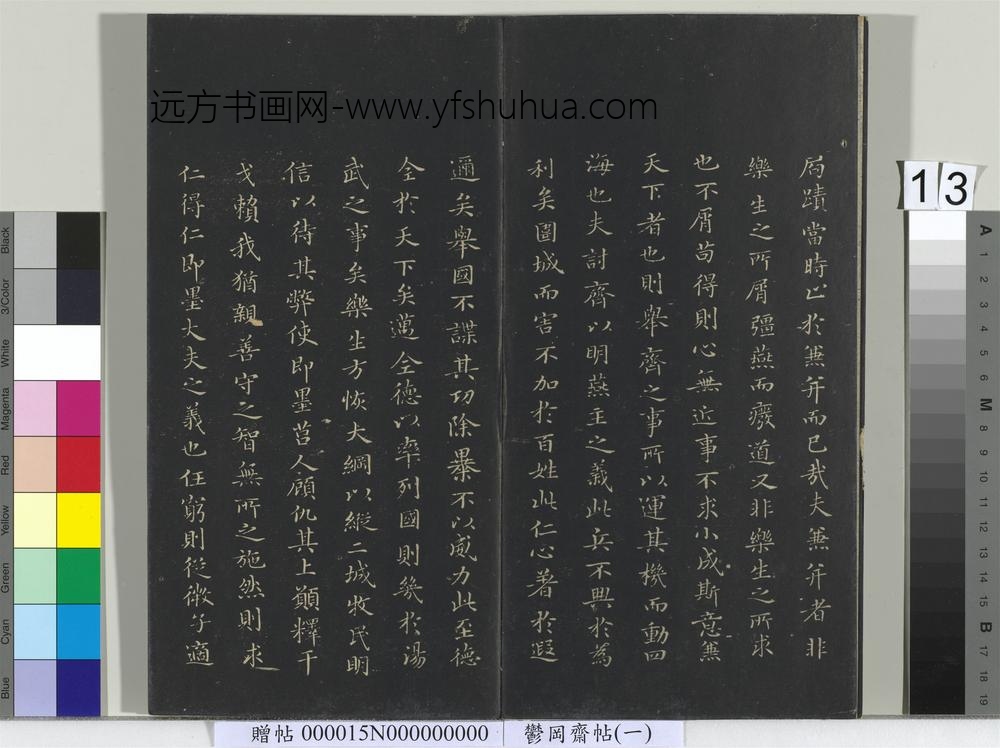 远方书画网-www.yfshuhua.com
局蹟當時止於兼并而已哉夫兼并者非
樂生之所屑彊燕而癈道又非樂生之所求
也不屑苟得則心無近事不求小成斯意兼
天下者也則舉齊之事所以運其機而動四
海也夫討齊以明燕主之義此兵不興於為
利矣圍城而害不加於百姓此仁心著於遐
邇矣舉國不謀其功除暴不以威力此至德
全於天下矣邁全德以率列國則幾於湯
武之事矣樂生方恢大綱以縱二城牧民明
信以待其弊使即墨莒人顧仇其上願釋干
戈賴我猶親善守之智無所之施然則求
仁得仁即墨大夫之義也任窮則從微子適
13
Black
3/Color
White
Magenta
Red
Yellow
Green
Cyan
Blue
A
1
2
3
4
5
6
M
8
9
10
11
12
13
14
15
B
17
18
19
贈帖 000015N000000000 鬱岡齋帖(一)